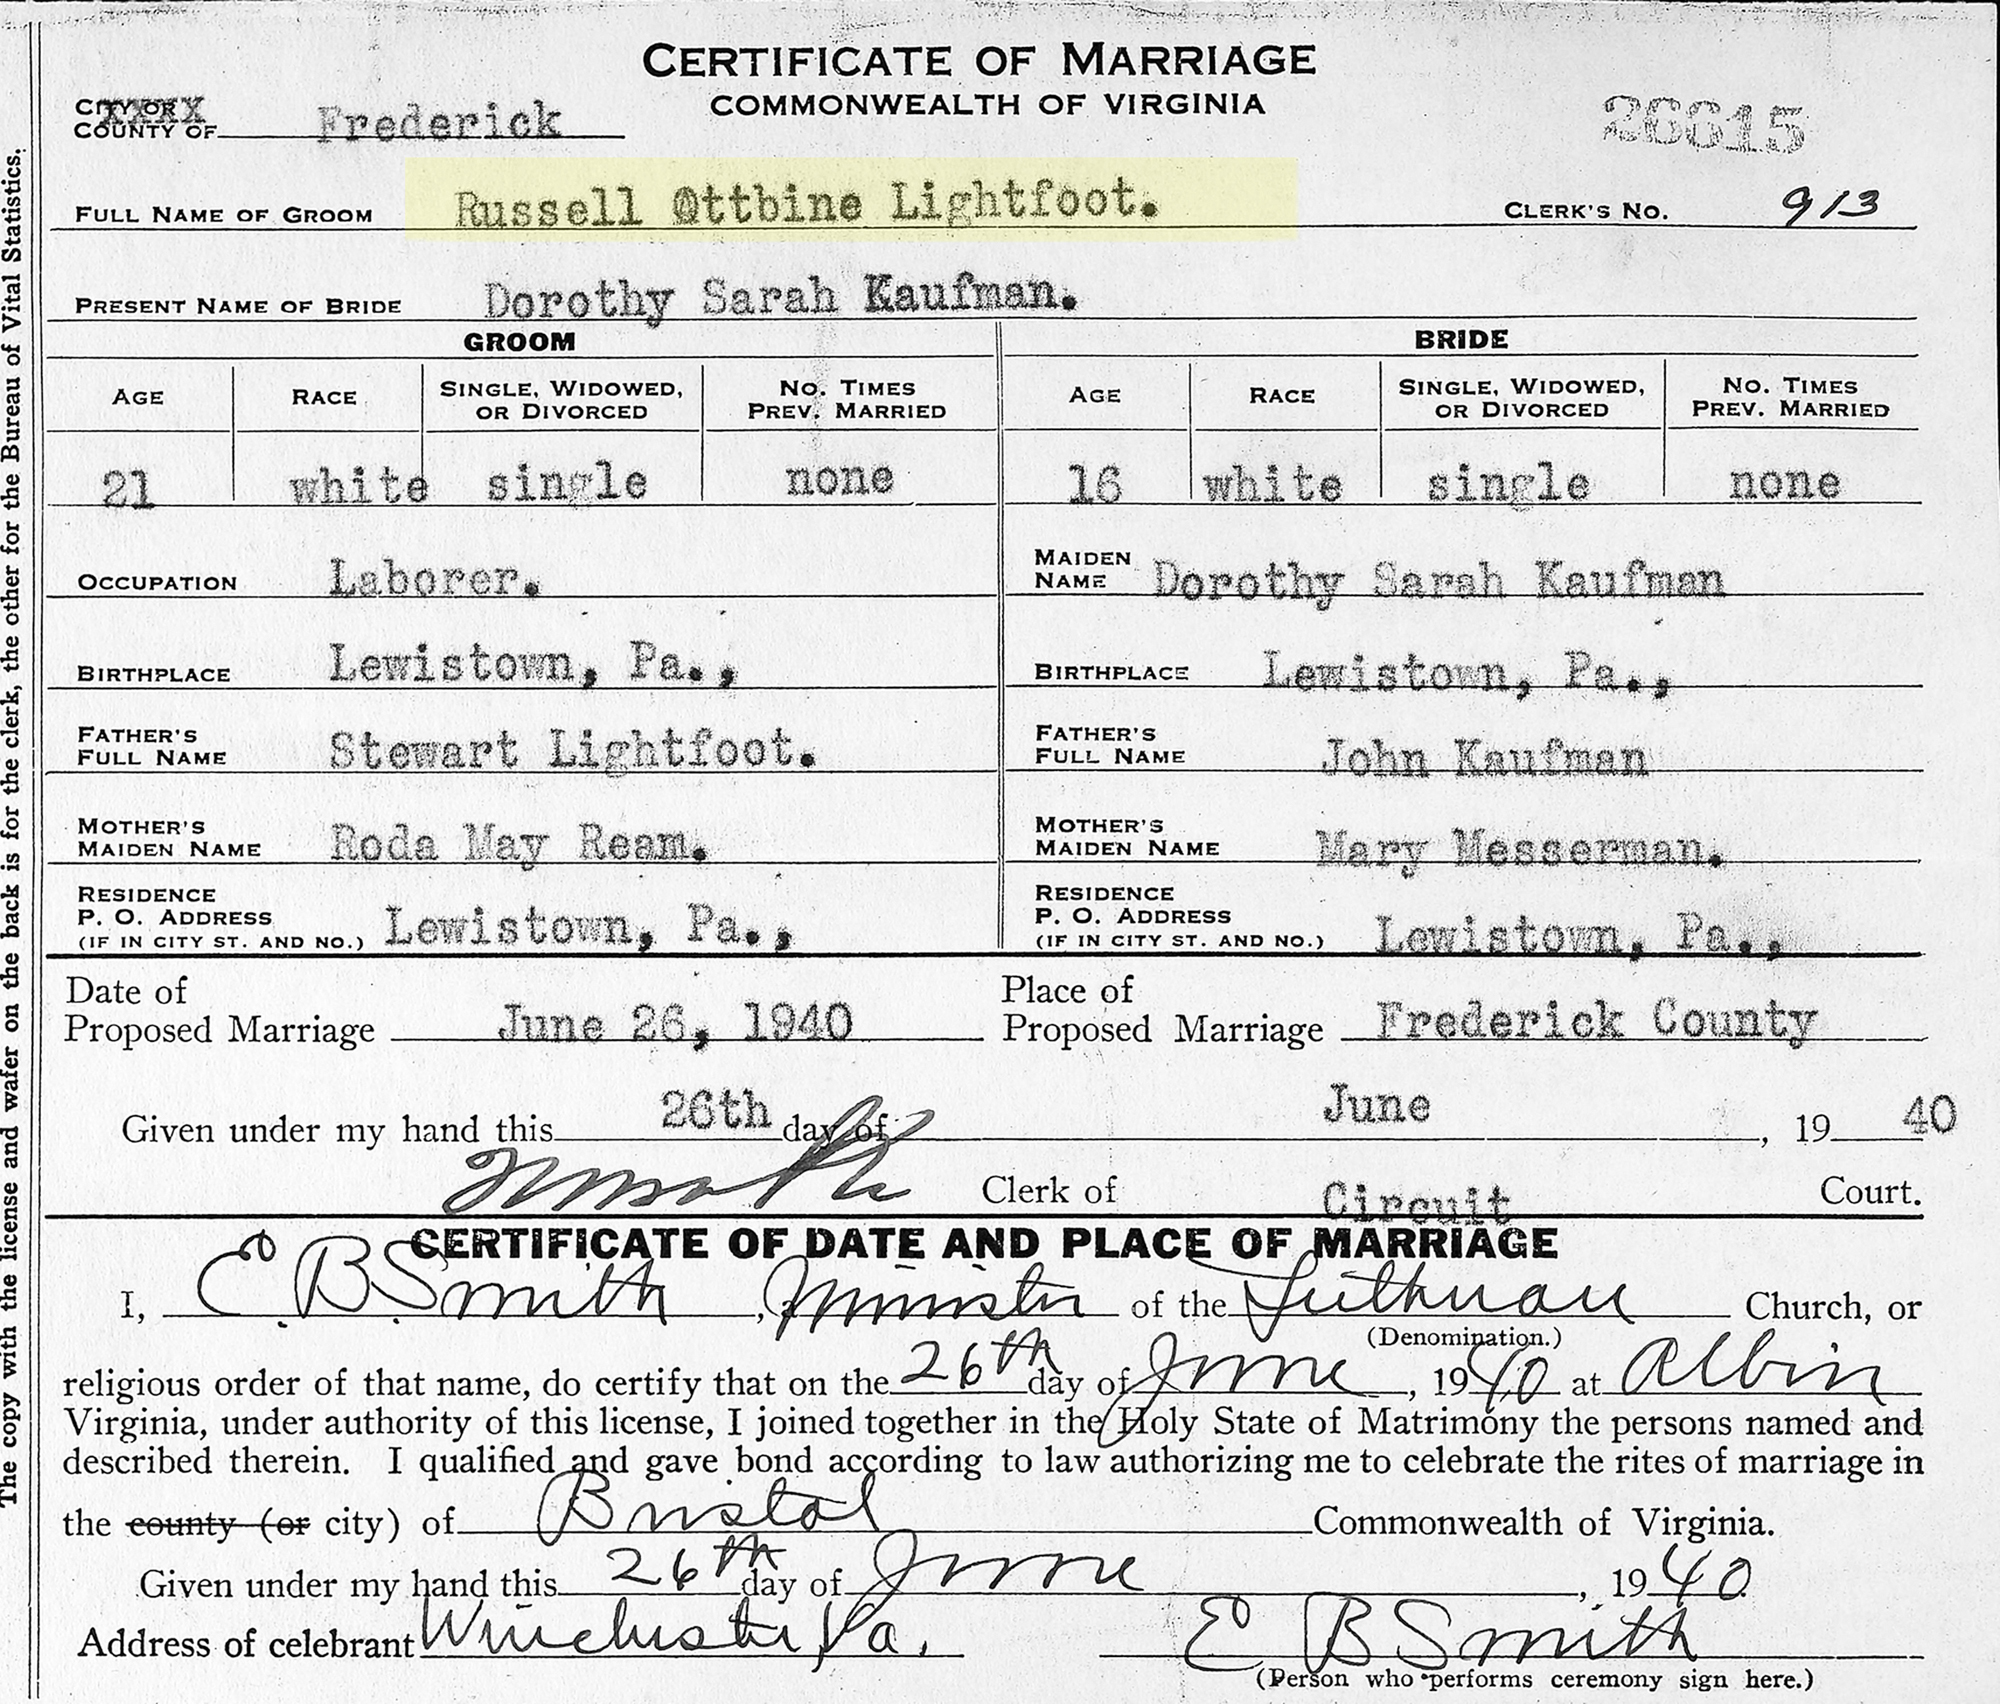 CERTIFICATE OF MARRIAGE
COMMONWEALTH OF VIRGINIA
CITY OR XXXX
COUNTY OF Frederick
26615
FULL NAME OF GROOM Russell Ottbine Lightfoot. CLERK'S NO. 913
PRESENT NAME OF BRIDE Dorothy Sarah Kaufman.
GROOM BRIDE
AGE RACE SINGLE, WIDOWED, OR DIVORCED NO. TIMES PREV. MARRIED AGE RACE SINGLE, WIDOWED, OR DIVORCED NO. TIMES PREV. MARRIED
21 white single none 16 white single none
OCCUPATION Laborer. MAIDEN NAME Dorothy Sarah Kaufman
BIRTHPLACE Lewistown, Pa., BIRTHPLACE Lewistown, Pa.,
FATHER'S FULL NAME Stewart Lightfoot. FATHER'S FULL NAME John Kaufman
MOTHER'S MAIDEN NAME Roda May Ream. MOTHER'S MAIDEN NAME Mary Messerman.
RESIDENCE P. O. ADDRESS (IF IN CITY ST. AND NO.) Lewistown, Pa., RESIDENCE P. O. ADDRESS (IF IN CITY ST. AND NO.) Lewistown, Pa.,
Date of Proposed Marriage June 26, 1940 Place of Proposed Marriage Frederick County
Given under my hand this 26th day of June, 19 40
Clerk of Circuit Court.
CERTIFICATE OF DATE AND PLACE OF MARRIAGE
I, E B Smith, Minister of the Lutheran Church, or
(Denomination.)
religious order of that name, do certify that on the 26th day of June, 1940 at Albin
Virginia, under authority of this license, I joined together in the Holy State of Matrimony the persons named and
described therein. I qualified and gave bond according to law authorizing me to celebrate the rites of marriage in
the county (or city) of Bristol Commonwealth of Virginia.
Given under my hand this 26th day of June, 1940
Address of celebrant Winchester, Va. E B Smith
(Person who performs ceremony sign here.)
The copy with the license and wafer on the back is for the clerk, the other for the Bureau of Vital Statistics.